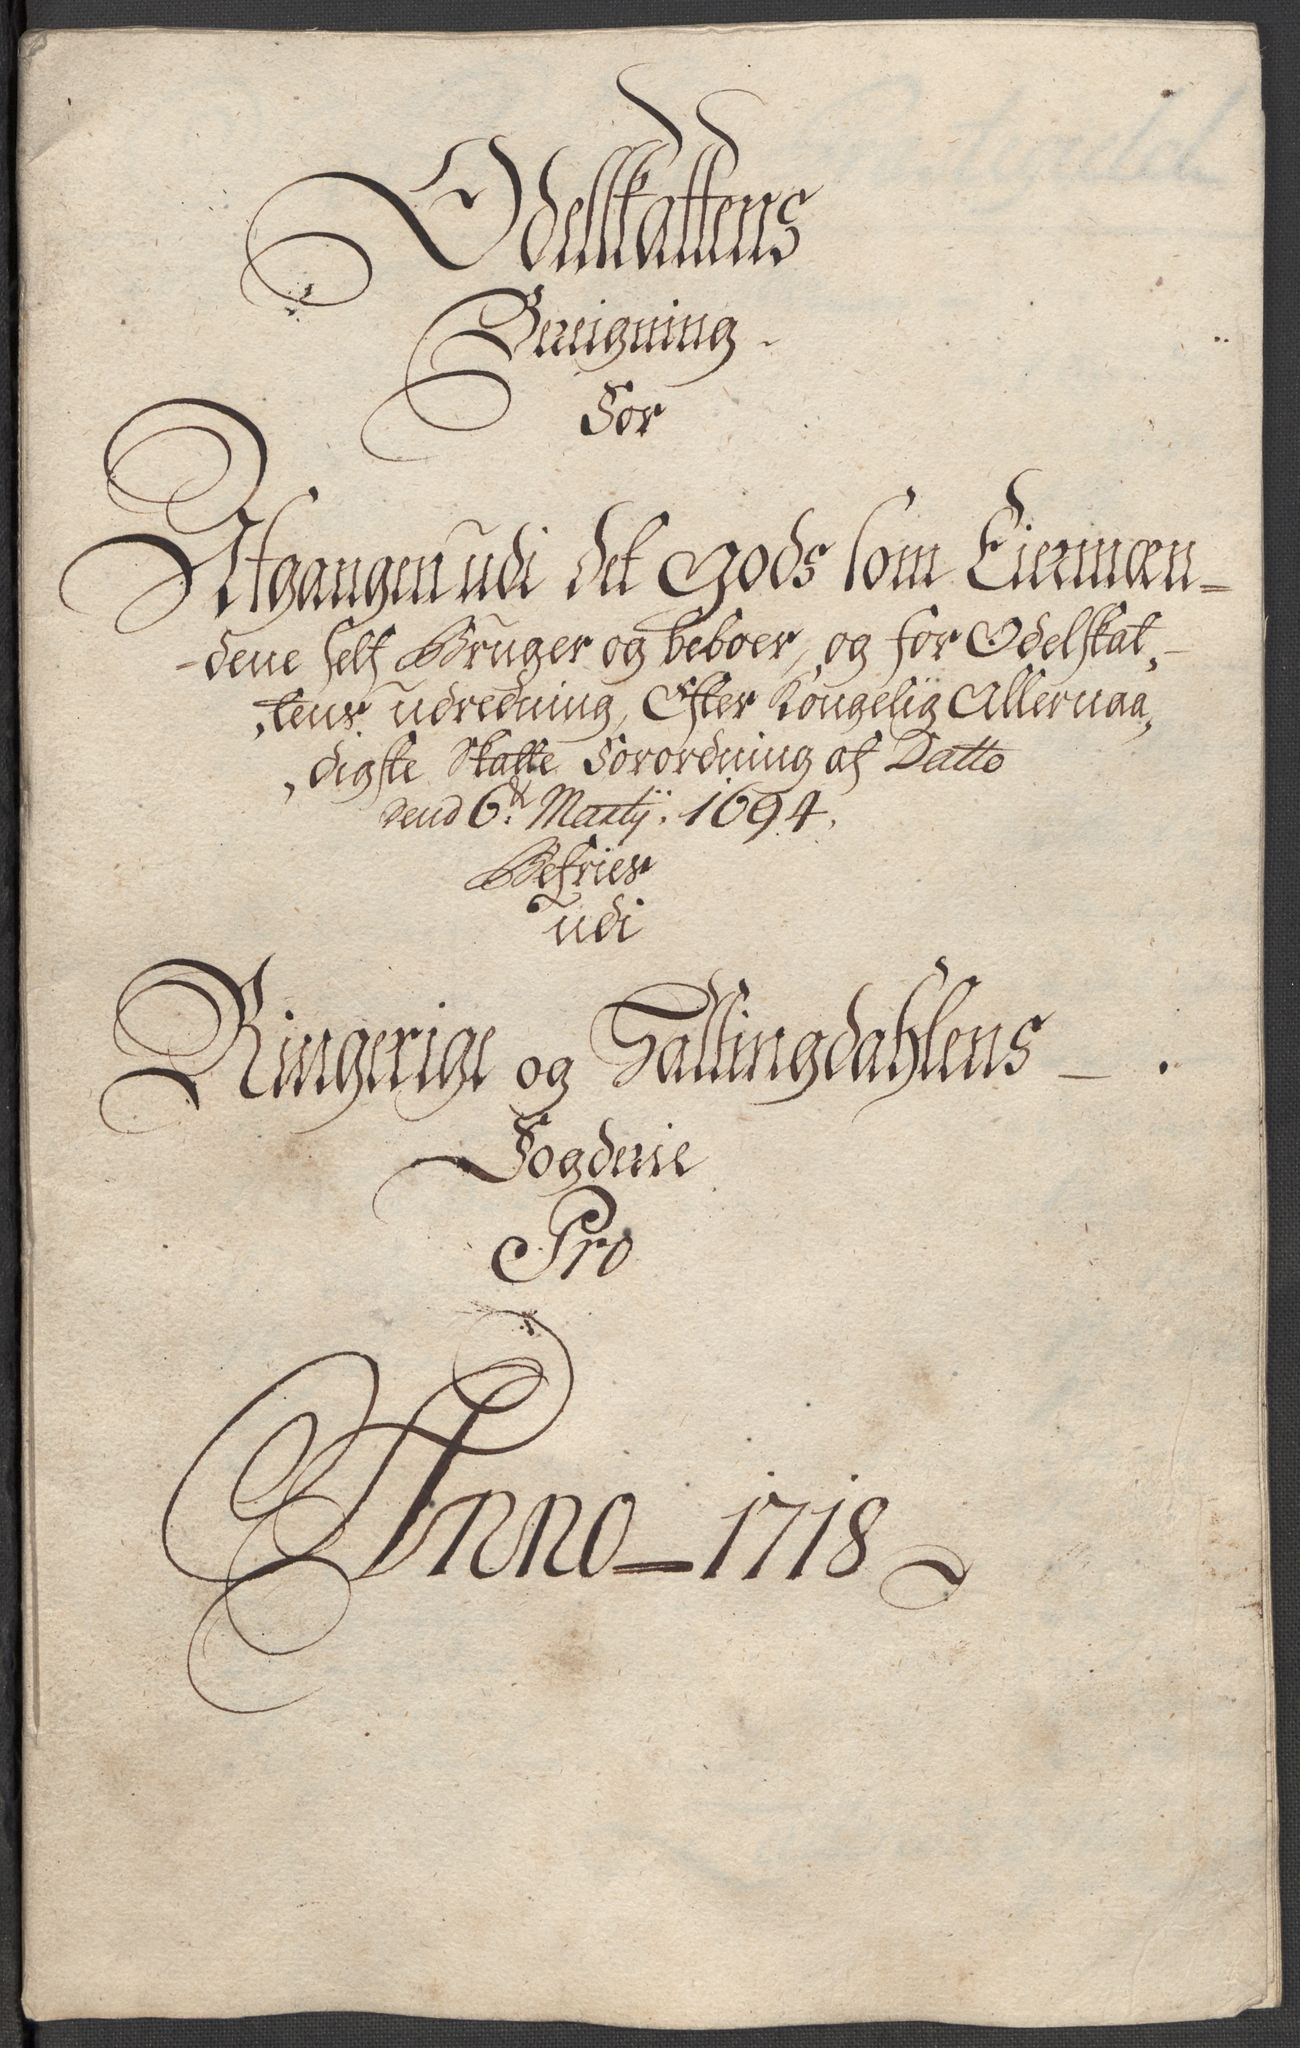 Odelskattens
Bereigning
for
Afgangen udi det Gods som Eiermæn-
-dene self Bruger og beboer, og for Odelskat,,
,,tens udredning, Efter Kongelig Allernaa,,
,,digste Skatte Forordning af Datto
dend 6.te Martij. 1694.
Befries
udi
Ringerige og Hallingdahlens
Fogderie
Pro
Anno - 1718